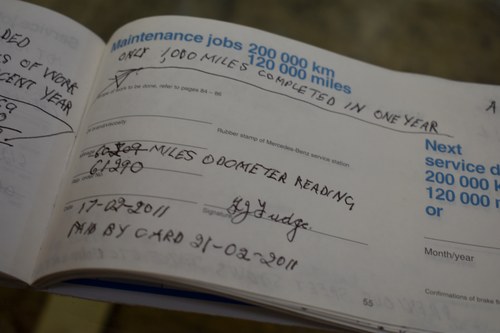 DED
S OF WORK
CENT YEAR
Maintenance jobs 200 000 km
120 000 miles
ONLY 1,000 MILES COMPLETED IN ONE YEAR
to be done, refer to pages
Rubber stamp of Mercedes-Benz service station
MILES ODOMETER READING
61290
17-02-2011
Signature
PAID BY CARD 21-02-2011
53
Next
service d
200 000
120 000 m
or
Month/year
Confirmations of brake f